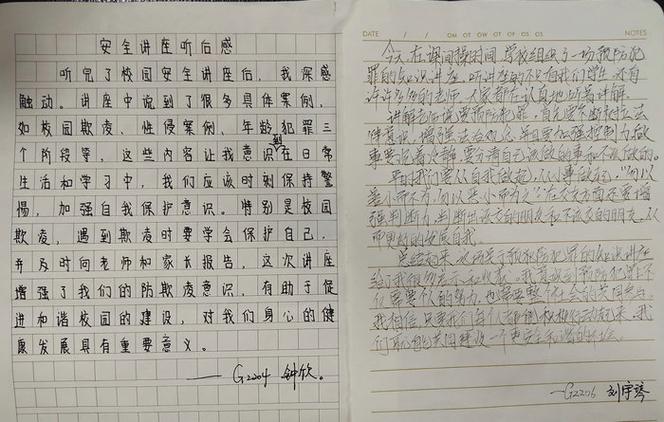 安全讲座听后感
听完了校园安全讲座后，我深感
触动。讲座中说到了很多具体案例，
如校园欺凌、性侵案例、年龄犯罪三
个阶段等，这些内容让我意识到在日常
生活和学习中，我们应该时刻保持警
惕，加强自我保护意识。特别是校园
欺凌，遇到欺凌时要学会保护自己，
并及时向老师和家长报告，这次讲座
增强了我们的防欺凌意识，有助于促
进和谐校园的建设，对我们身心的健
康发展具有重要意义。
——G2204 钟欣。
DATE / / NOTES
今天在课间操时间，学校组织了一场预防犯
罪的知识讲座，听讲座的不只有我们学生，还有
许许多多的老师，大家都在认真地听着讲解。
讲解老师说要预防犯罪，首先要不断
增强法治观念，并且要加强控制力，做
事要说着冷静，要分清自己该做的事和不该做的。
平时我们要从自我做起，从小事做起，"勿以
善小而不为，勿以恶小而为之"在交友方面还要增
强判断力，判断出该交的朋友和不该交的朋友，从
而更好的发展自我。
总结起来，这场关于预防犯罪的知识讲座
给了我很多启示和收获。我意识到预防犯罪不
仅需要个人的努力，也需要整个社会的共同参与。
我相信，只要我们每个人都积极行动起来，我
们就能共同建设一个更安全和谐的社会。
——G2206 刘宇琴